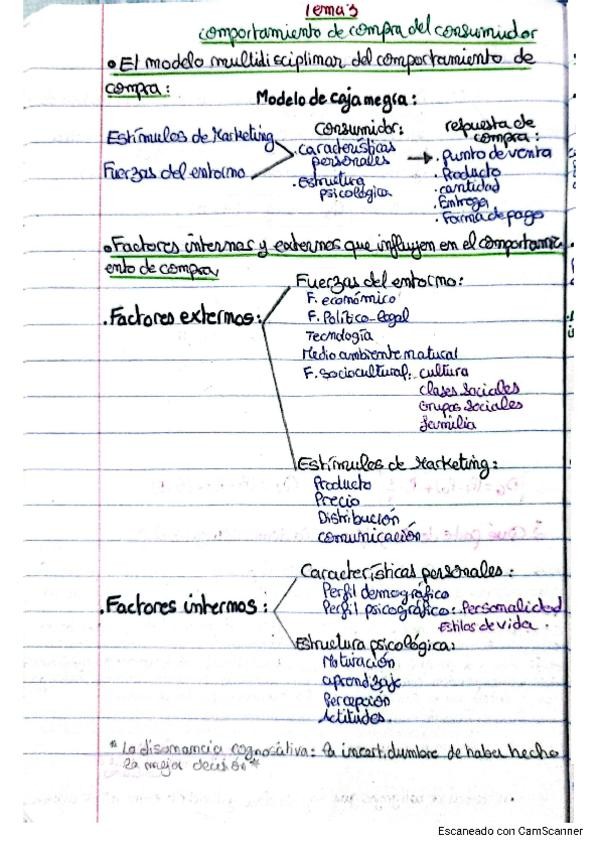 Tema 3
comportamiento de compra del consumidor
•El modelo multidisciplinar del comportamiento de
compra:
Modelo de caja negra:
Estímulos de Marketing
Fuerzas del entorno
consumidor:
.características
personales
.Estructura
psicológica
respuesta de
compra:
.punto de venta
.Producto
.cantidad
.Entrega
.Forma de pago
•Factores internos y externos que influyen en el comportami
ento de compra
.Factores externos:
Fuerzas del entorno:
F. económico
F. Político-legal
Tecnología
Medio ambiente natural
F. sociocultural: cultura
clases sociales
Grupos sociales
familia
Estímulos de Marketing:
Producto
Precio
Distribución
comunicación
.Factores internos:
Características personales:
Perfil demográfico
Perfil psicográfico: Personalidad
Estilos de vida
Estructura psicológica:
Motivación
aprendizaje
Percepción
Actitudes
*La disonancia cognositiva: la incertidumbre de haber hecho
la mejor decisión*
Escaneado con CamScanner